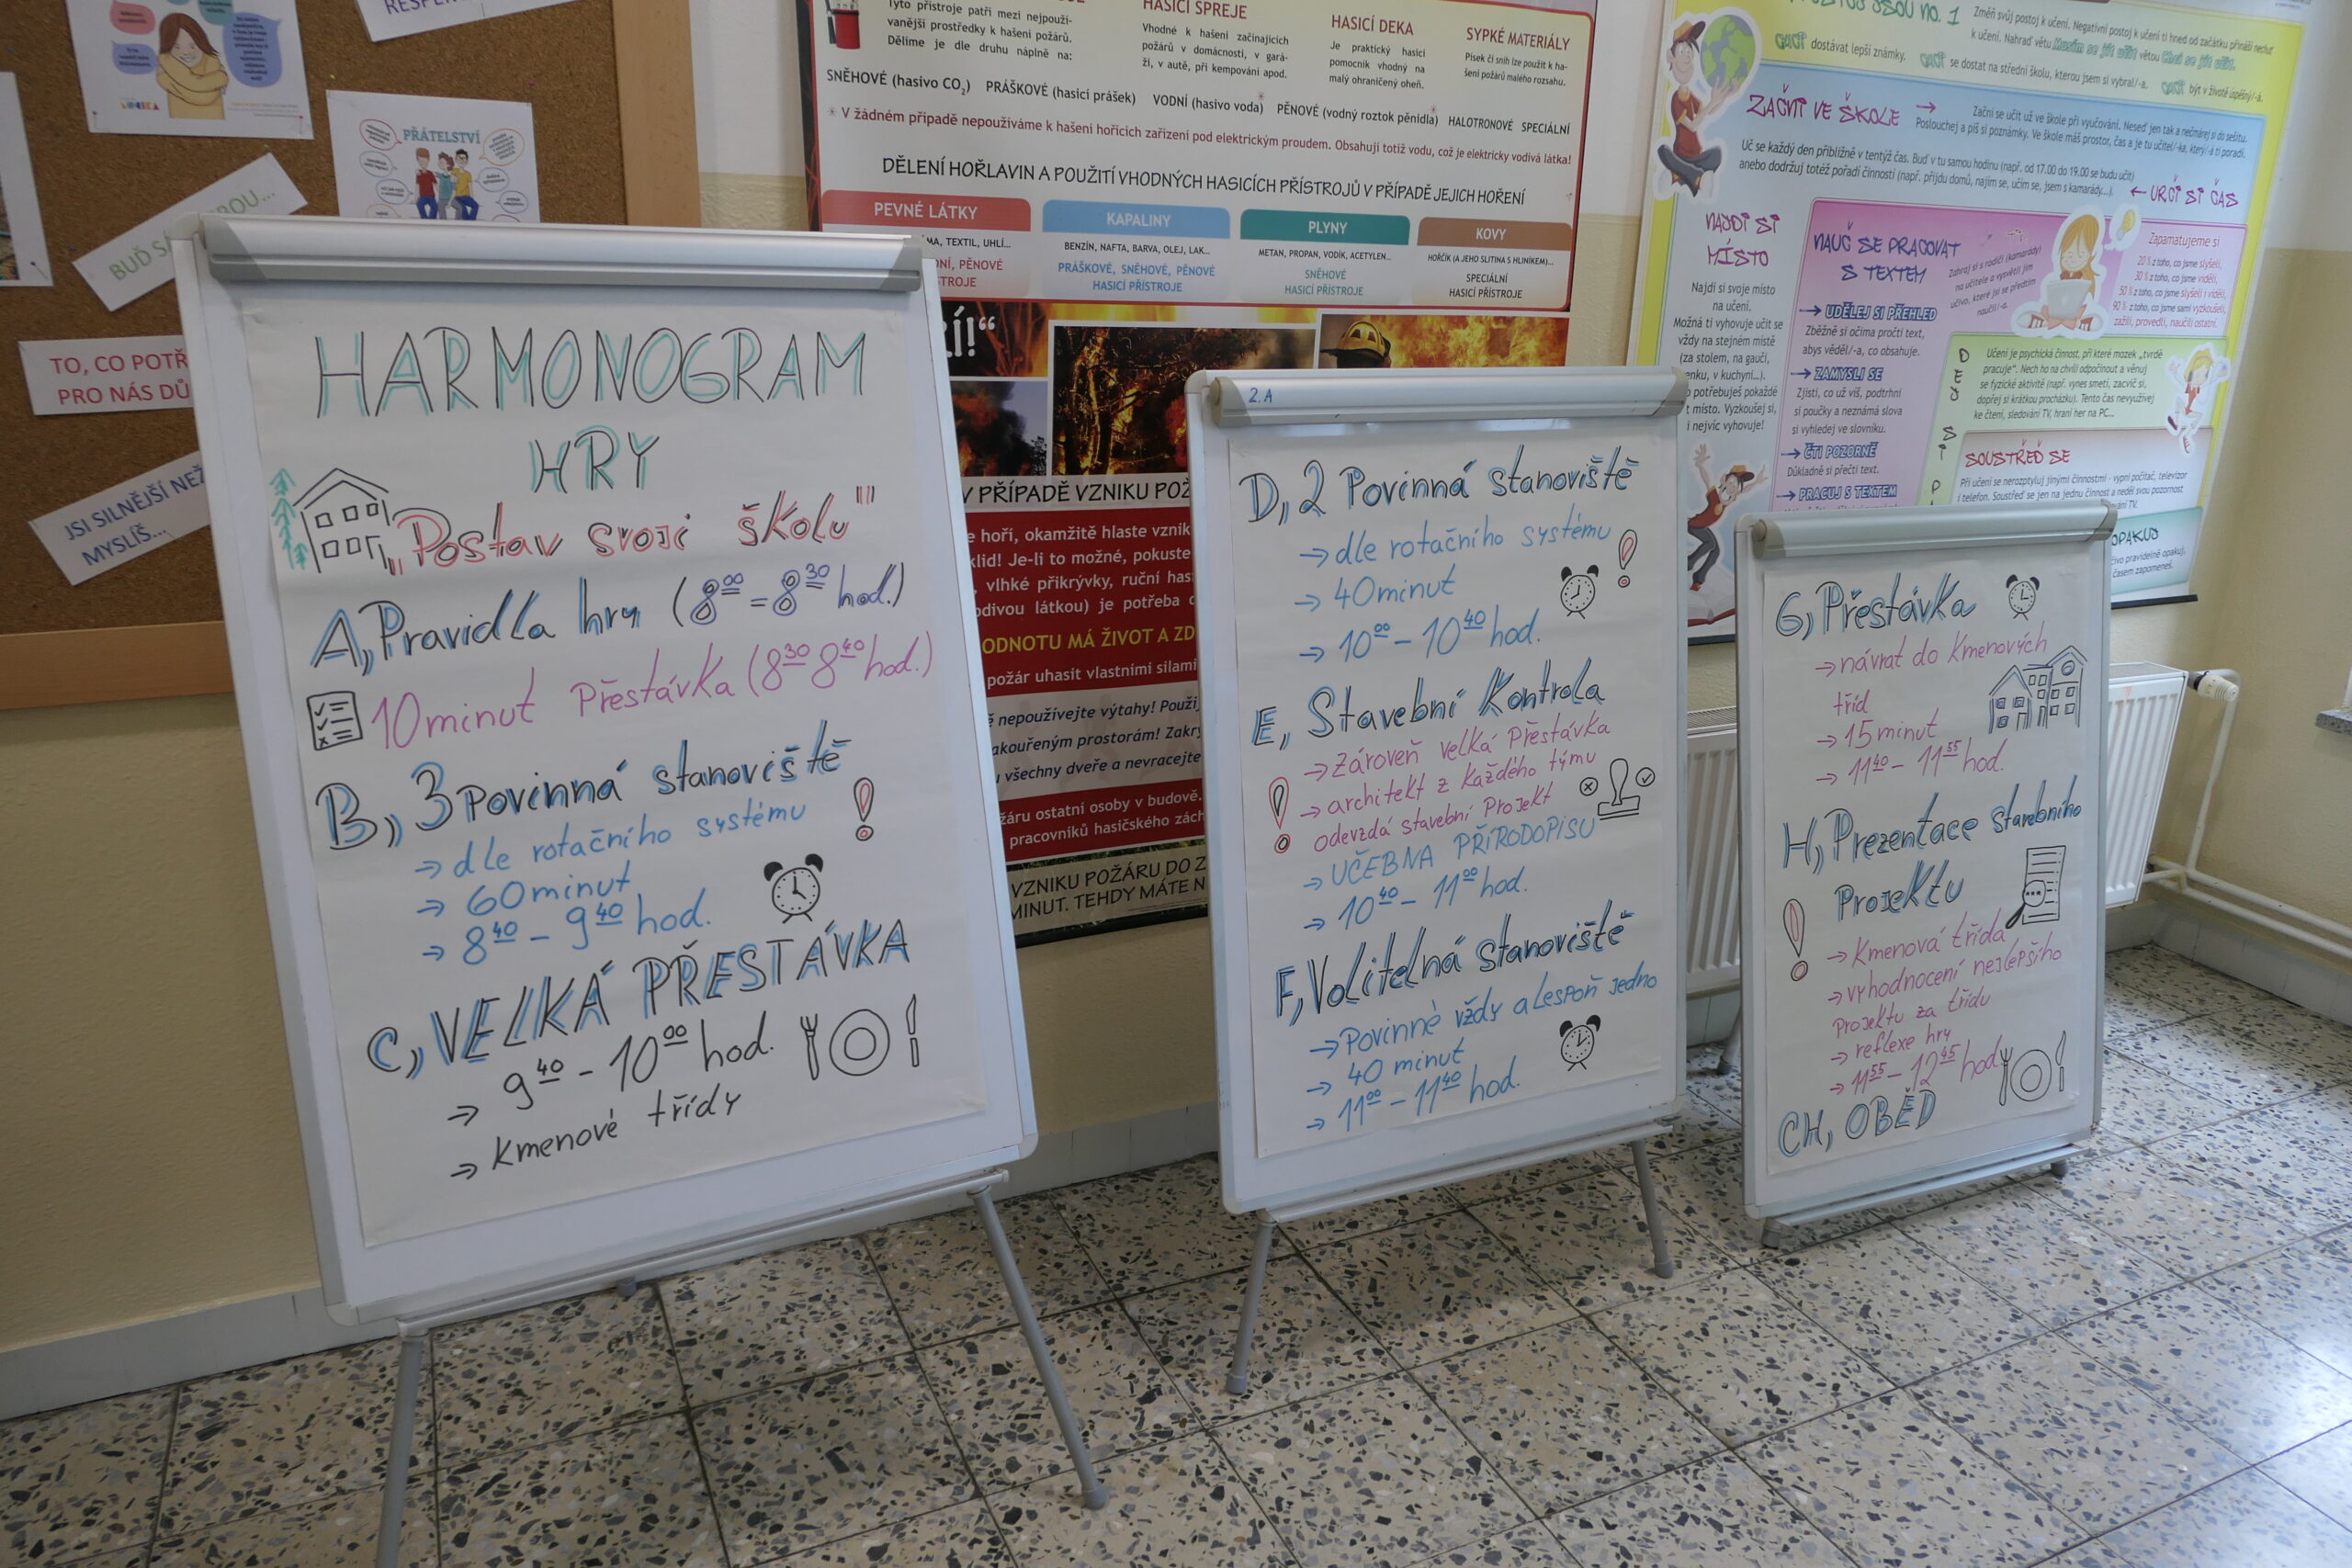 HARMONOGRAM
HRY
„Postav svoji školu"
A, Pravidla hry (8⁰⁰ – 8³⁰ hod.)
10 minut Přestávka (8³⁰ 8⁴⁰ hod.)
B, 3 povinná stanoviště
→ dle rotačního systému
→ 60 minut
→ 8⁴⁰ – 9⁴⁰ hod.
C, VELKÁ PŘESTÁVKA
→ 9⁴⁰ – 10⁰⁰ hod.
→ Kmenové třídy
2. A
D, 2 Povinná stanoviště
→ dle rotačního systému
→ 40 minut
→ 10⁰⁰ – 10⁴⁰ hod.
E, Stavební Kontrola
→ Zároveň velká Přestávka
→ architekt z Každého týmu
odevzdá stavební Projekt
→ UČEBNA PŘÍRODOPISU
→ 10⁴⁰ – 11⁰⁰ hod.
F, Volitelná stanoviště
→ Povinné vždy alespoň jedno
→ 40 minut
→ 11⁰⁰ – 11⁴⁰ hod.
G, Přestávka
→ návrat do Kmenových
tříd
→ 15 minut
→ 11⁴⁰ – 11⁵⁵ hod.
H, Prezentace stavebního
Projektu
→ Kmenová třída
→ vyhodnocení nejlepšího
Projektu za třídu
→ reflexe hry
→ 11⁵⁵ – 12⁴⁵ hod.
CH, OBĚD
PŘÁTELSTVÍ
TO, CO POTŘ
PRO NÁS DŮ
JSI SILNĚJŠÍ NEŽ
MYSLÍŠ...
Tyto přístroje patří mezi nejpouží-
vanější prostředky k hašení požárů.
Dělíme je dle druhu náplně na:
HASICÍ SPREJE
Vhodné k hašení začínajících
požárů v domácnosti, v gará-
ži, v autě, při kempování apod.
HASICÍ DEKA
Je praktický hasicí
pomocník vhodný na
malý ohraničený oheň.
SYPKÉ MATERIÁLY
Písek či sníh lze použít k ha-
šení požárů malého rozsahu.
SNĚHOVÉ (hasivo CO₂) PRÁŠKOVÉ (hasicí prášek) VODNÍ (hasivo voda)* PĚNOVÉ (vodný roztok pěnidla)* HALOTRONOVÉ SPECIÁLNÍ
* V žádném případě nepoužíváme k hašení hořících zařízení pod elektrickým proudem. Obsahují totiž vodu, což je elektricky vodivá látka!
DĚLENÍ HOŘLAVIN A POUŽITÍ VHODNÝCH HASICÍCH PŘÍSTROJŮ V PŘÍPADĚ JEJICH HOŘENÍ
PEVNÉ LÁTKY
MA, TEXTIL, UHLÍ...
DNÍ, PĚNOVÉ
STROJE
KAPALINY
BENZÍN, NAFTA, BARVA, OLEJ, LAK...
PRÁŠKOVÉ, SNĚHOVÉ, PĚNOVÉ
HASICÍ PŘÍSTROJE
PLYNY
METAN, PROPAN, VODÍK, ACETYLEN...
SNĚHOVÉ
HASICÍ PŘÍSTROJE
KOVY
HOŘČÍK (A JEHO SLITINA S HLINÍKEM)...
SPECIÁLNÍ
HASICÍ PŘÍSTROJE
V PŘÍPADĚ VZNIKU POŽ
e hoří, okamžitě hlaste vznik
klid! Je-li to možné, pokuste
, vlhké přikrývky, ruční has
odivou látkou) je potřeba
ODNOTU MÁ ŽIVOT A ZD
požár uhasit vlastními silami
nepoužívejte výtahy! Použij
akouřeným prostorám! Zakr
u všechny dveře a nevracejte
žáru ostatní osoby v budově.
pracovníků hasičského zách
VZNIKU POŽÁRU DO Z
MINUT. TEHDY MÁTE N
Změň svůj postoj k učení. Negativní postoj k učení ti hned od začátku přináší nechuť
k učení. Nahraď větu Musím se jít učit větou Chci se jít učit.
CHCI dostávat lepší známky. CHCI se dostat na střední školu, kterou jsem si vybral/-a. CHCI být v životě úspěšný/-á.
ZAČNI VE ŠKOLE →
Začni se učit už ve škole při vyučování. Neseď jen tak a nečmárej si do sešitu.
Poslouchej a piš si poznámky. Ve škole máš prostor, čas a je tu učitel/-ka, který/-á ti poradí.
Uč se každý den přibližně v tentýž čas. Buď v tu samou hodinu (např. od 17.00 do 19.00 se budu učit)
anebo dodržuj totéž pořadí činností (např. přijdu domů, najím se, učím se, jsem s kamarády...).
← URČI SI ČAS
NAJDI SI
MÍSTO
Najdi si svoje místo
na učení.
Možná ti vyhovuje učit se
vždy na stejném místě
(za stolem, na gauči,
enku, v kuchyni...).
o potřebuješ pokaždé
t místo. Vyzkoušej si,
i nejvíc vyhovuje!
NAUČ SE PRACOVAT
S TEXTEM
→ UDĚLEJ SI PŘEHLED
Zběžně si očima pročti text,
abys věděl/-a, co obsahuje.
→ ZAMYSLI SE
Zjisti, co už víš, podtrhni
si poučky a neznámá slova
si vyhledej ve slovníku.
→ ČTI POZORNĚ
Důkladně si přečti text.
→ PRACUJ S TEXTEM
Zapamatujeme si
20 % z toho, co jsme slyšeli,
30 % z toho, co jsme viděli,
50 % z toho, co jsme slyšeli i viděli,
90 % z toho, co jsme sami vyzkoušeli,
zažili, provedli, naučili ostatní.
Učení je psychická činnost, při které mozek „tvrdě
pracuje". Nech ho na chvíli odpočinout a věnuj
se fyzické aktivitě (např. vynes smetí, zacvič si,
dopřej si krátkou procházku). Tento čas nevyužívej
ke čtení, sledování TV, hraní her na PC...
SOUSTŘEĎ SE
Při učení se nerozptyluj jinými činnostmi - vypni počítač, televizor
i telefon. Soustřeď se jen na jednu činnost a neděl svou pozornost
OPAKUJ
ivo pravidelně opakuj,
časem zapomeneš.